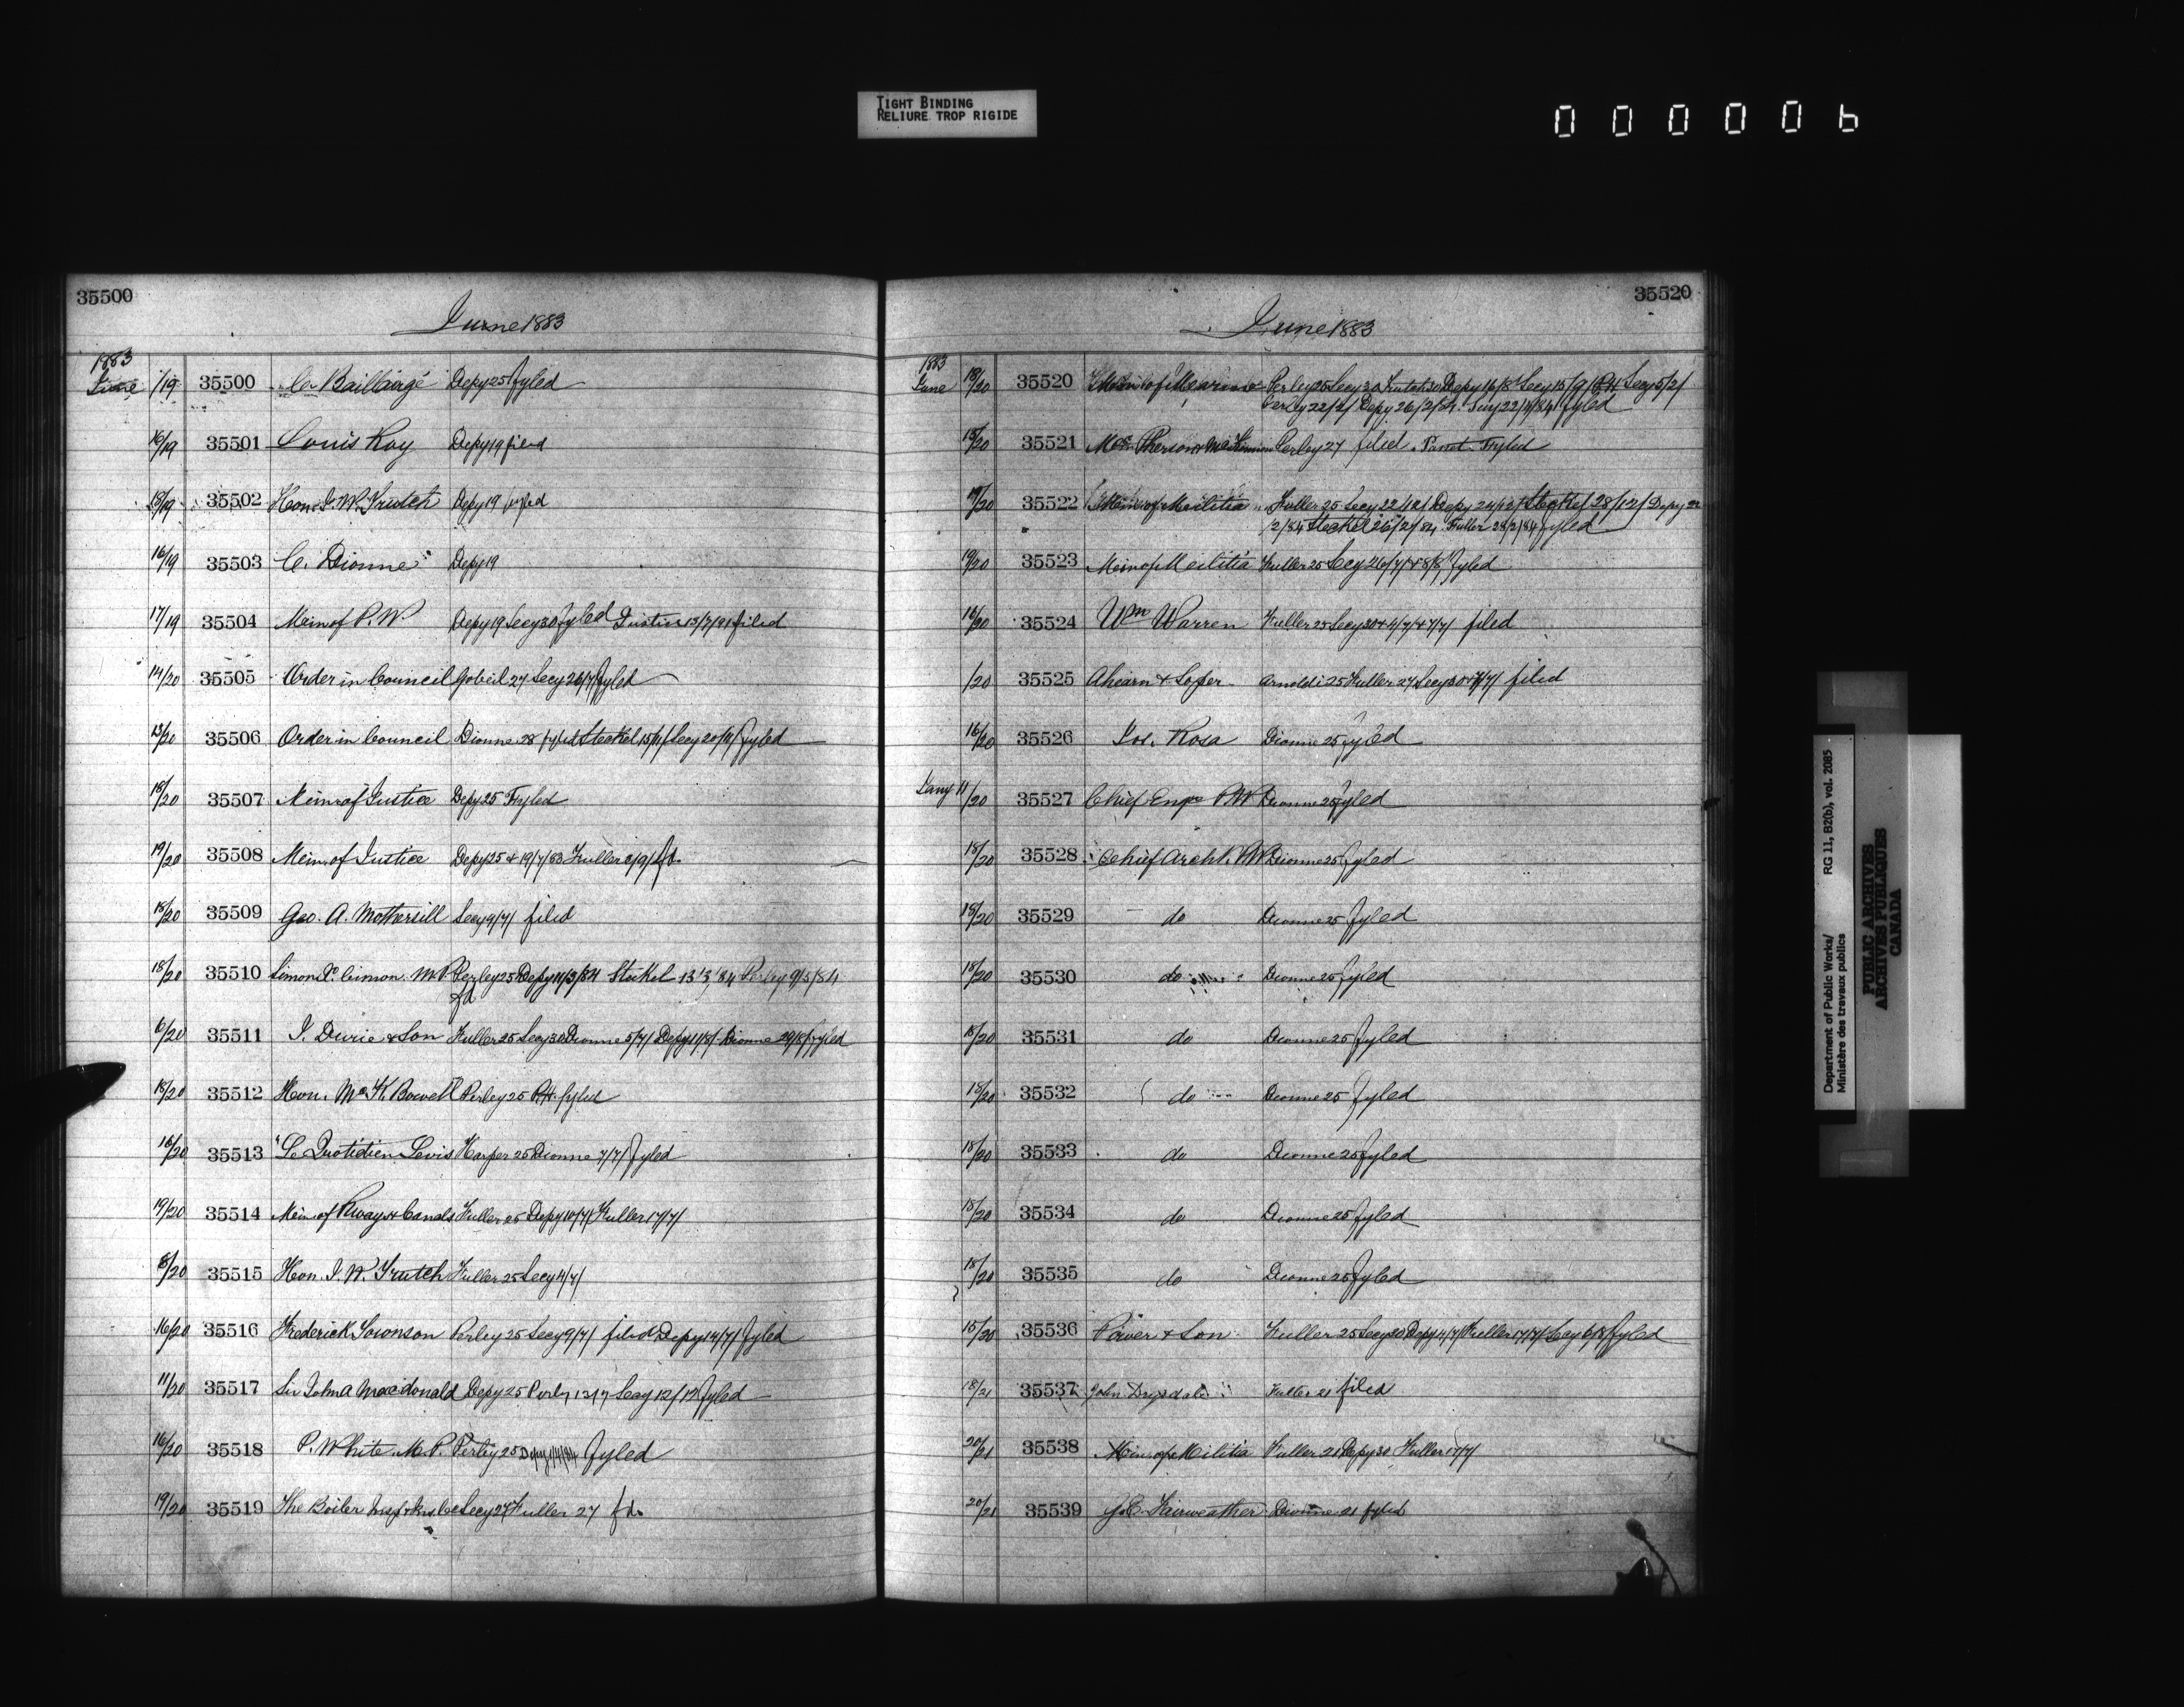 TIGHT BINDING
RELIURE TROP RIGIDE
000006
35500
June 1883
1883
June /19 35500 C. Baillairgé Depy 25 fyled
16/19 35501 Louis Roy Depy 19 filed
13/19 35502 Hon. J. W. Trutch Depy 19 fyled
16/19 35503 C. Dionne Depy 19
17/19 35504 Min of P. W. Depy 19 Secy 30 fyled Justice 15/7/91 filed
14/20 35505 Order in Council Gobeil 27 Secy 26/7/ fyled
13/20 35506 Order in Council Dionne 28 fyled Steckel 15/11/ Secy 20/11/ fyled
18/20 35507 Min of Justice Depy 25 Fyled
19/20 35508 Min. of Justice Depy 25 & 19/7/83 Fuller 8/9/ fd.
18/20 35509 Geo. A. Mothersill Secy 9/7/ filed
18/20 35510 Simon X. Cimon. M.P. Perley 25 Depy 11/3/84 Steckel 13/3/84 Perley 9/5/84
fd
6/20 35511 J. Durie & Son Fuller 25 Secy 30 Dionne 5/7/ Depy 11/8/ Dionne 29/8/ fyled
18/20 35512 Hon. McK. Bowell Perley 25 P.H. fyled
16/20 35513 "Le Quotidien Levis Harper 25 Dionne 7/7/ fyled
19/20 35514 Min of Rways & Canals Fuller 25 Depy 10/7/ Fuller 17/7/
8/20 35515 Hon. J. W. Trutch Fuller 25 Secy 4/7/
16/20 35516 Frederick Townson Perley 25 Secy 9/7/ filed Depy 14/7/ fyled
11/20 35517 Sir John A Macdonald Depy 25 Perley Secy 12/12 fyled
16/20 35518 P. White. M.P. Perley 25 Depy 1/4/84 fyled
19/20 35519 The Boiler Insp & Ins. Co Secy 27 Fuller 27 fd.
35520
June 1883
1883
June 18/20 35520 Min of Marine Perley 25 Secy 30 Trutch 30 Depy 16/8 Secy 15/9/ P.H. Secy 5/2/
Perley 22/2/ Depy 26/2/ Secy 22/4/84 fyled
15/20 35521 McPherson & McKinnon Perley 27 filed Fyled
19/20 35522 Min of Militia Fuller 25 Secy 22/12/ Depy 24/12/ Steckel 28/12/ Depy 22
/2/84 Steckel 26/2/84 Fuller 28/2/84 fyled
19/20 35523 Min of Militia Fuller 25 Secy 26/7/ & 8/8/ fyled
16/20 35524 Wm Warren Fuller 25 Secy 30 & 4/7/ & 7/7/ filed
/20 35525 Ahearn & Soper Arnoldi 25 Fuller 27 Secy 30 & 7/7/ filed
16/20 35526 Jos. Rosa Dionne 25 fyled
Jany 11/20 35527 Chief Engr P.W Dionne 25 fyled
18/20 35528 Chief Archt. P.W. Dionne 25 fyled
18/20 35529 do Dionne 25 fyled
18/20 35530 do Dionne 25 fyled
18/20 35531 do Dionne 25 fyled
18/20 35532 do Dionne 25 fyled
18/20 35533 do Dionne 25 fyled
18/20 35534 do Dionne 25 fyled
18/20 35535 do Dionne 25 fyled
15/20 35536 Power & Son Fuller 25 Secy 30 Depy 4/7/ Fuller 17/7/ Secy 6/8/ fyled
18/21 35537 John Drysdale Fuller 21 filed
20/21 35538 Min. of Militia Fuller 21 Depy 30 Fuller 17/7/
20/21 35539 J. C. Fairweather Dionne 21 fyled
Department of Public Works/ RG 11, B2(b), vol. 2085
Ministère des travaux publics
PUBLIC ARCHIVES
ARCHIVES PUBLIQUES
CANADA